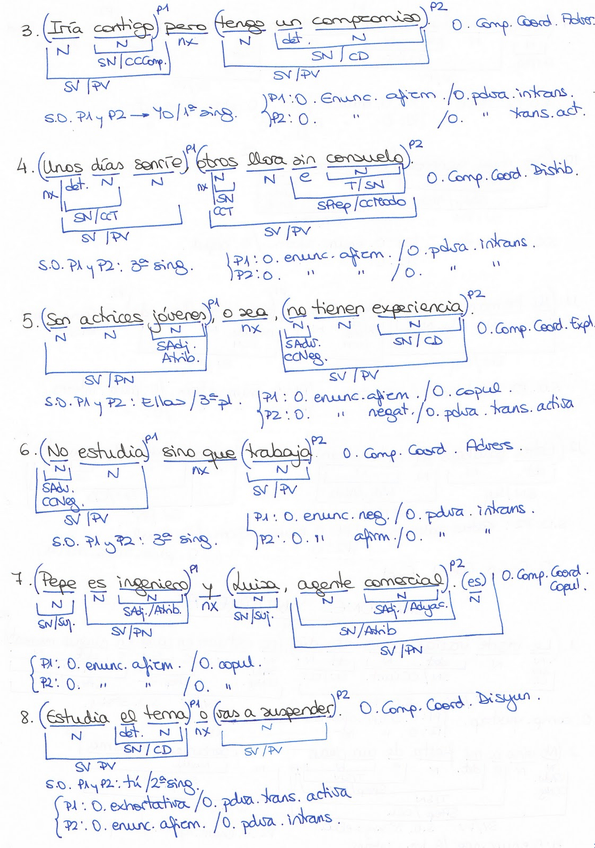 3. (Iría contigo)P1 pero (tengo un compromiso)P2. O. Comp. Coord. Advers.
N N nx N det. N
SN/CCComp. SN/CD
SV/PV SV/PV
S.O. P1 y P2 → Yo/1ª sing. P1: O. Enunc. afirm. /O. pdva. intrans.
P2: O. " /O. " trans. act.
4. (Unos días sonríe)P1, (otros llora sin consuelo)P2. O. Comp. Coord. Distrib.
nx det. N N nx N N e N
SN T/SN
SN/CCT CCT SPrep/CCModo
SV/PV SV/PV
S.O. P1 y P2: 3ª sing. P1: O. enunc. afirm. /O. pdva. intrans.
P2: O. " " /O. " "
5. (Son actrices jóvenes)P1, o sea, (no tienen experiencia)P2. O. Comp. Coord. Expl.
N N N nx N N N
SAdj. SAdv. SN/CD
Atrib. CCNeg.
SV/PN SV/PV
S.O. P1 y P2: Ellas/3ª pl. P1: O. enunc. afirm. /O. copul.
P2: O. " negat. /O. pdva. trans. activa
6. (No estudia)P1 sino que (trabaja)P2. O. Comp. Coord. Advers.
N N nx N
SAdv. SV/PV
CCNeg.
SV/PV
S.O. P1 y P2: 3ª sing. P1: O. enunc. neg. /O. pdva. intrans.
P2: O. " afirm. /O. " "
7. (Pepe es ingeniero)P1 y (Luisa, agente comercial)P2. (es) O. Comp. Coord. Copul.
N N N nx N N N N
SN/Suj. SAdj./Atrib. SN/Suj. SAdj./Adyac.
SV/PN SN/Atrib
SV/PN
P1: O. enunc. afirm. /O. copul.
P2: O. " " /O. "
8. (Estudia el tema)P1 o (vas a suspender)P2. O. Comp. Coord. Disyun.
N det. N nx N
SN/CD SV/PV
SV PV
S.O. P1 y P2: tú/2ª sing.
P1: O. exhortativa /O. pdva. trans. activa
P2: O. enunc. afirm. /O. pdva. intrans.